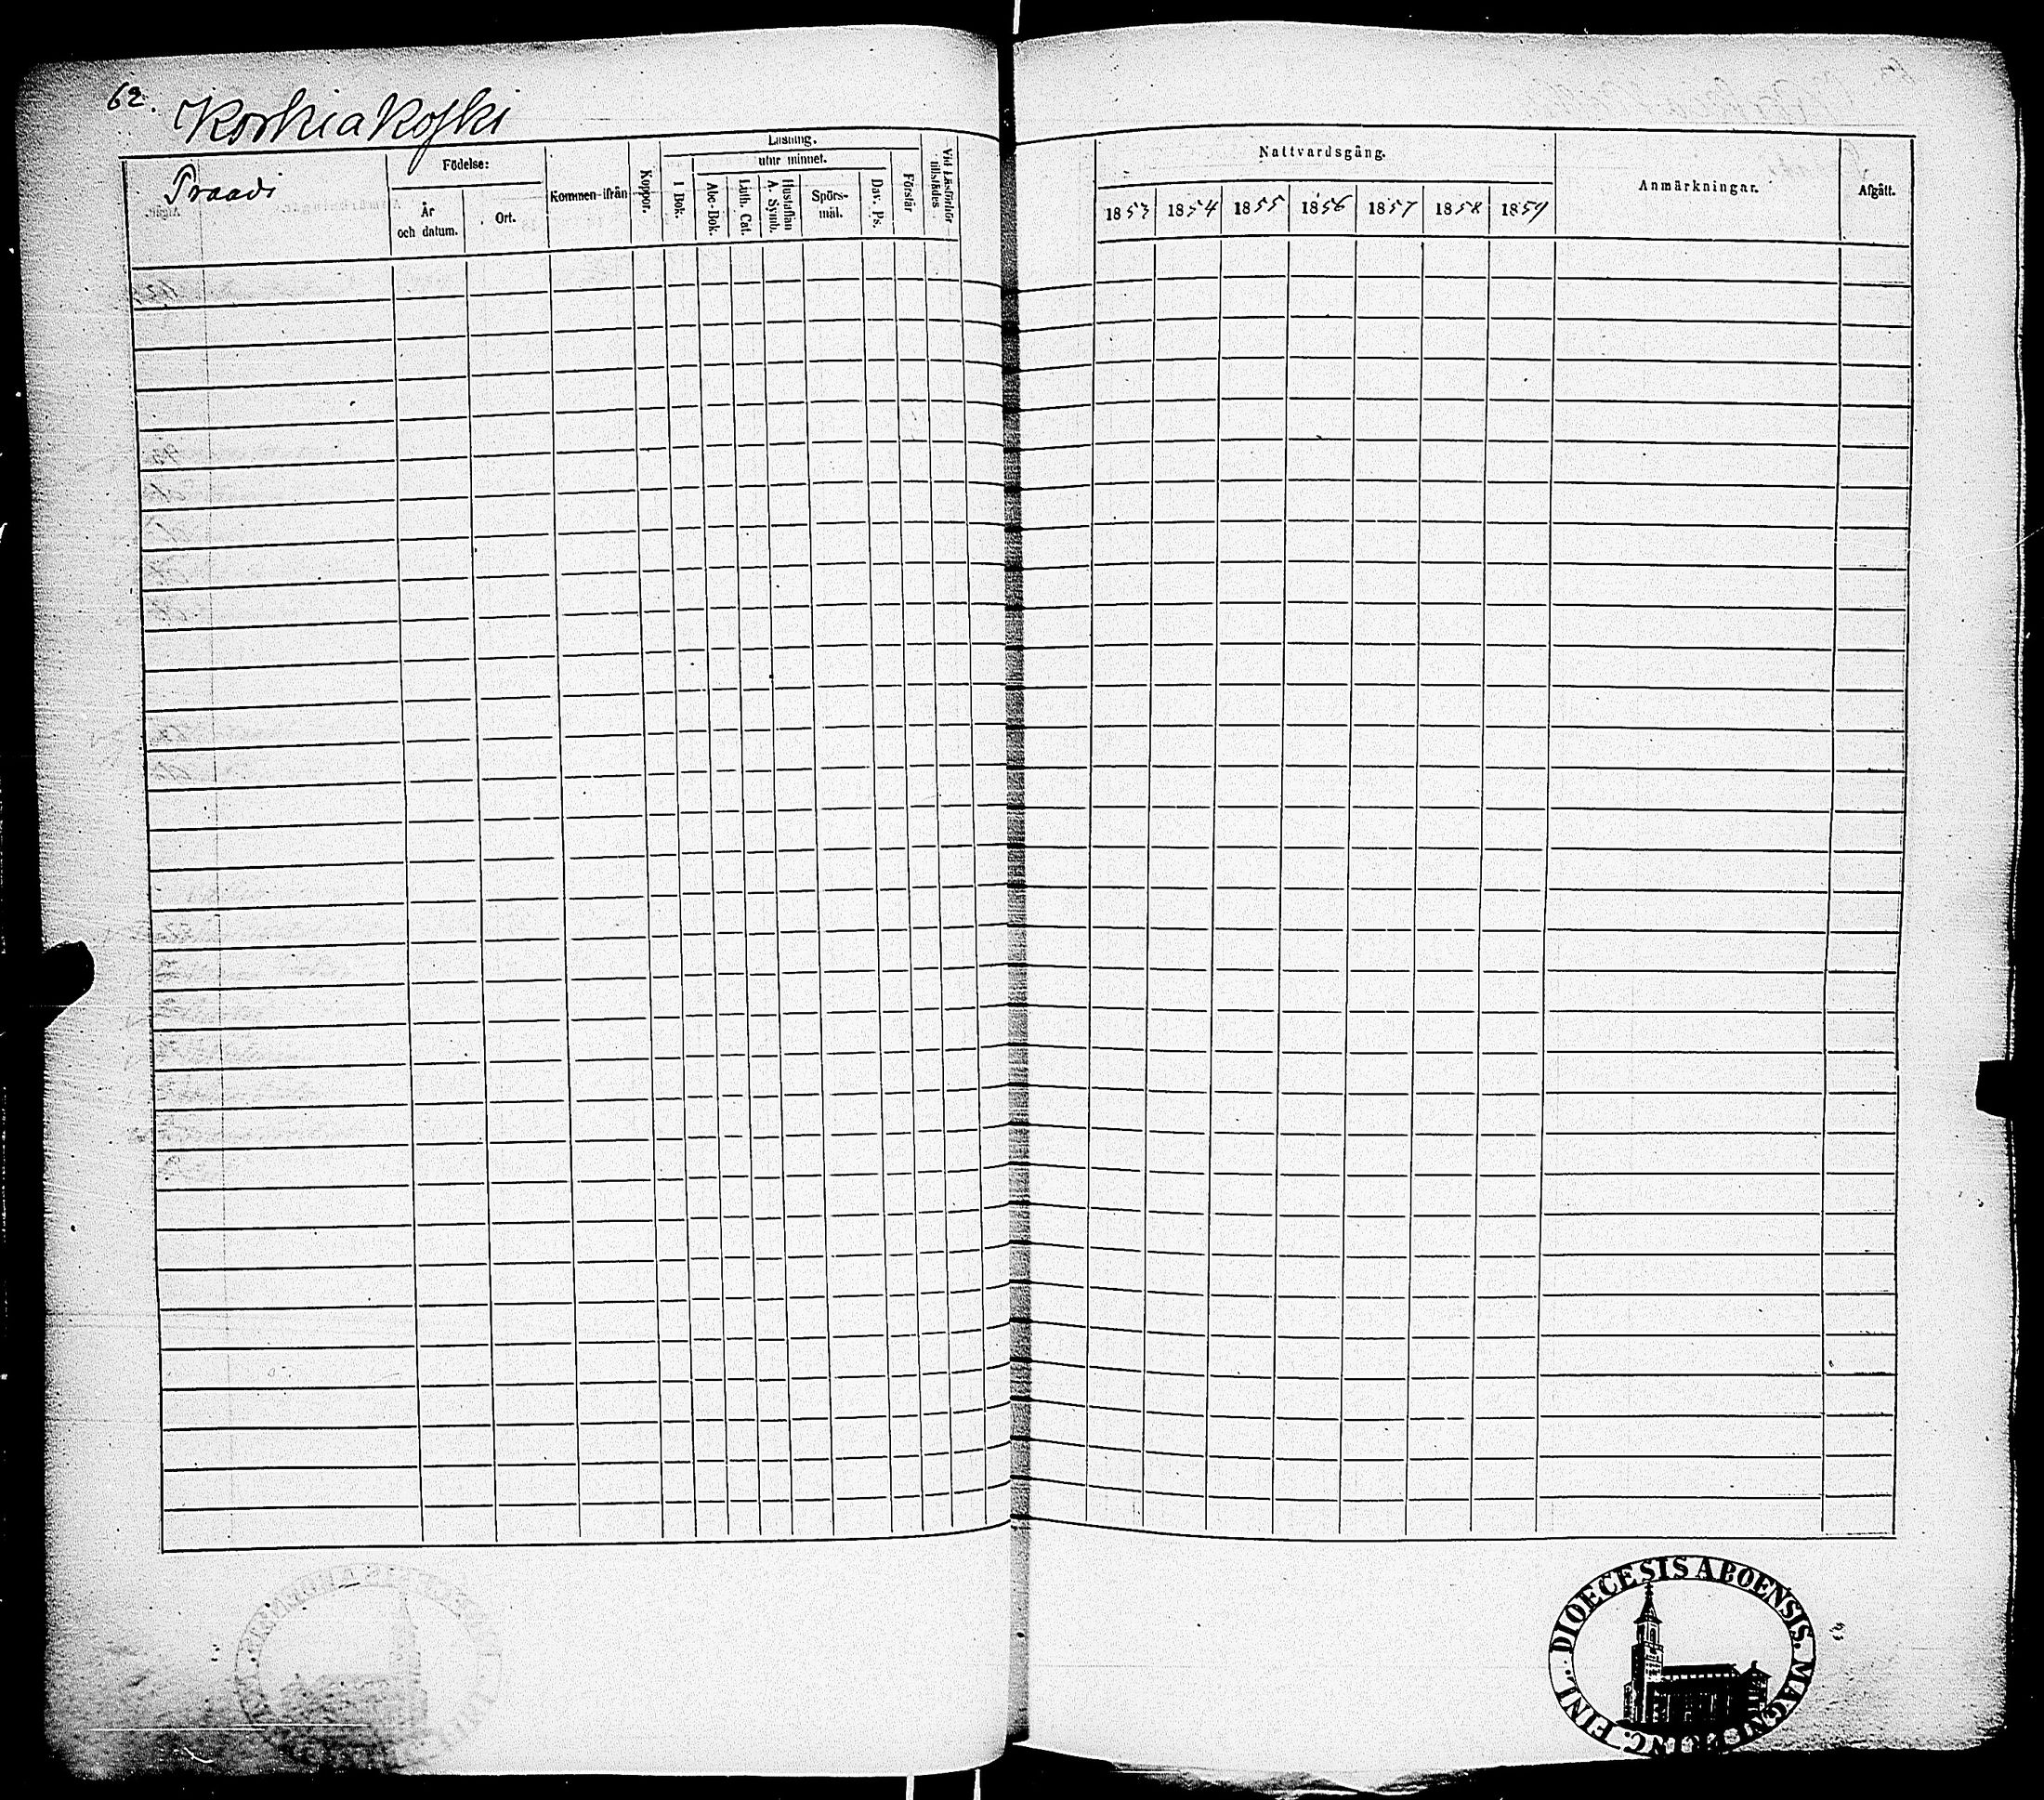 62. Koskiakoski
Praadi
Födelse:
År och datum.
Ort.
Kommen ifrån
Koppor.
Läsning.
I Bok.
utur minnet.
Abc-Bok.
Luth. Cat.
Hustaflan A. Symb.
Spörs-mål.
Dav. Ps.
Förstår
Vid Läsförhör tillstädes
Nattvardsgång.
1853 1854 1855 1856 1857 1858 1859
Anmärkningar.
Afgått.
DIOECESIS ABOENSIS. MAGNI PRINC. FINL.